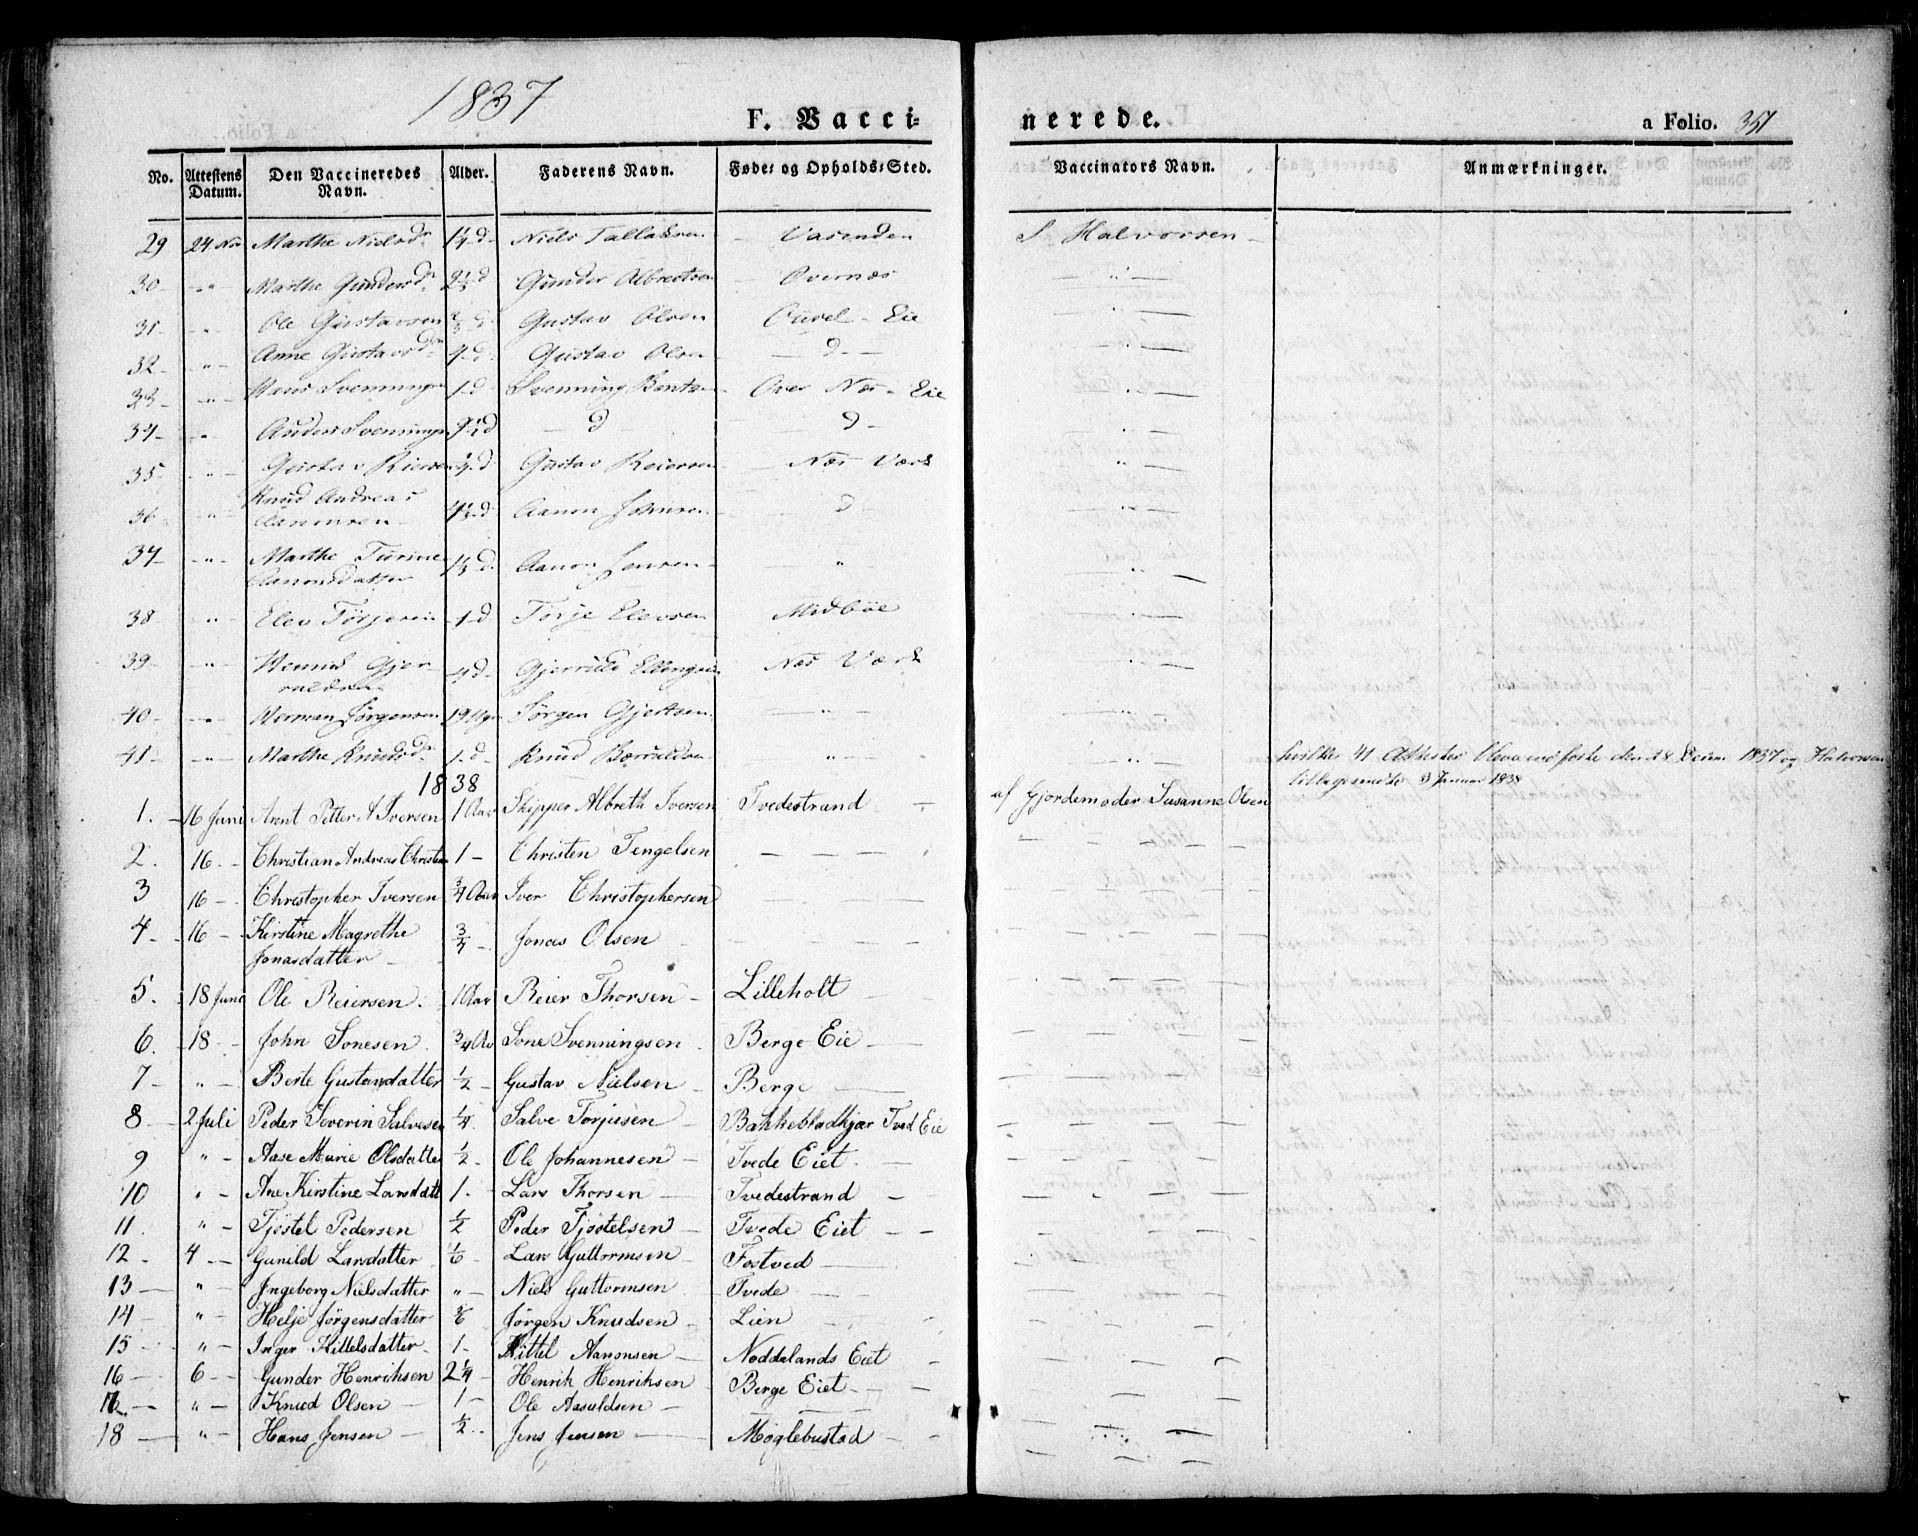 1837
F. Vacci=
nerede.
a Folio. 351
No. Attestens Datum. Den Vaccineredes Navn. Alder. Faderens Navn. Føde= og Opholds=Sted. Vaccinators Navn. Anmærkninger.
29 24 Nov Marthe Nielsdr 1/4 d Niels Tallaksen Vasenden S Halvorsen
30 " Marthe Gundersdr 2 1/3 d Gunder Albretsen Overnæs "
31 " Ole Gustavsen d Gustav Olsen Eie "
32 " Anne Gustavsdr 4 d Gustav Olsen d "
33 " Hans Svenningsen 1 d Svenning Bentsen Over Næs Eie "
34 " Anders Svenningsen d d d "
35 " Gustav Riersen d Gustav Reiersen Næs Værk "
36 " Knud Andreas
Aanonsen 4 1/3 d Aanon Jensen d "
37 " Marthe Turine
Aanonsdatter 1/3 d Aanon Jensen " "
38 " Elev Törjesen 1 d Torje Elevsen Midböe "
39 " 4 d Næs Værk "
40 " Herman Jörgensen 19 Jörgen Gjertsen " "
41 " Marthe Knudsdr 1 d Knud " " hvilke 41 Attester bleve den 28 1837 og Halvorsen
tilbagesendte 3 Januar 1838
1838
1. 16 Juni Arent Petter A Iversen 1 Aar Skipper Albreth Iversen Tvedestrand af Gjordemoder Susanne Olsen
2. 16 Christian Andreas Christen 1 Christen Tengelsen
3 16 Christopher Iversen 3/4 Aar Iver Christophersen
4 16 Kirstine Magrethe
Jonasdatter 3/4 Jonas Olsen
5. 18 Juni Ole Reiersen 1 Aar Reier Thorsen Lilleholt
6. 18 John Sonesen 3/4 Aar Sone Svenningsen Berge Eie
7 " Berte Gustavdatter 1/2 Gustav Nielsen Berge
8 2 Juli Peder Severin Salvesen 1/4 Salve Torjusen Bakkebladkjær Tved Eie
9 " Aase Marie Olsdatter 1/2 Ole Johannesen Tvede Eiet
10 " Ane Kirstine Larsdatt 1. Lars Thorsen Tvedestrand
11. " Tjöstel Pedersen 1/2 Peder Tjöstelsen Tvede Eiet
12 4 Gunild Larsdatter 1/6 Lars Guttormsen Fostved
13 " Ingeborg Nielsdatter " Niels Guttormsen Tvede
14 " Helje Jørgensdatter Jørgen Knudsen Lien
15 " Inger Kittelsdatter 1 Kittel Aanonsen Noddelands Eiet
16 6 Gunder Henriksen 2 1/4 Henrik Henriksen Berge Eiet
17 " Knud Olsen 1 Ole Aasuldsen
18 " Hans Jensen 1/2 Jens Jensen Møglebustad